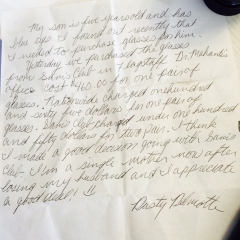 My son is five years old and has
bad eyes. I found out recently that
I needed to purchase glasses for him.
Yesterday we purchased the glasses
from Sam's Club in Flagstaff. Dr.
office cost $400.00 for one pair of
glasses. Nationwide charged one hundred
and sixty five dollars for one pair of
glasses. Sam's Club charged under one hundred
and fifty dollars for two pair. I think
I made a good decision going with Sam's
Club. I'm a single mother now after
losing my husband and I appreciate
a good deal!